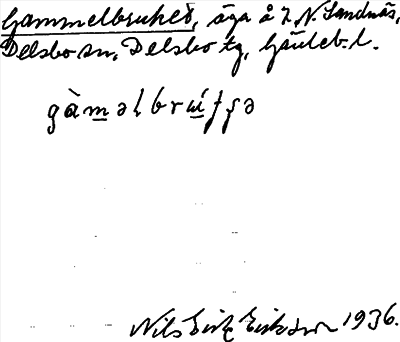 Gammelbruket, äga å 2 N. Sandnäs,
Delsbo sn, Delsbo tg, Gävleb. l.
gàməlbrútʂə
Nils Erik Erikson 1936.